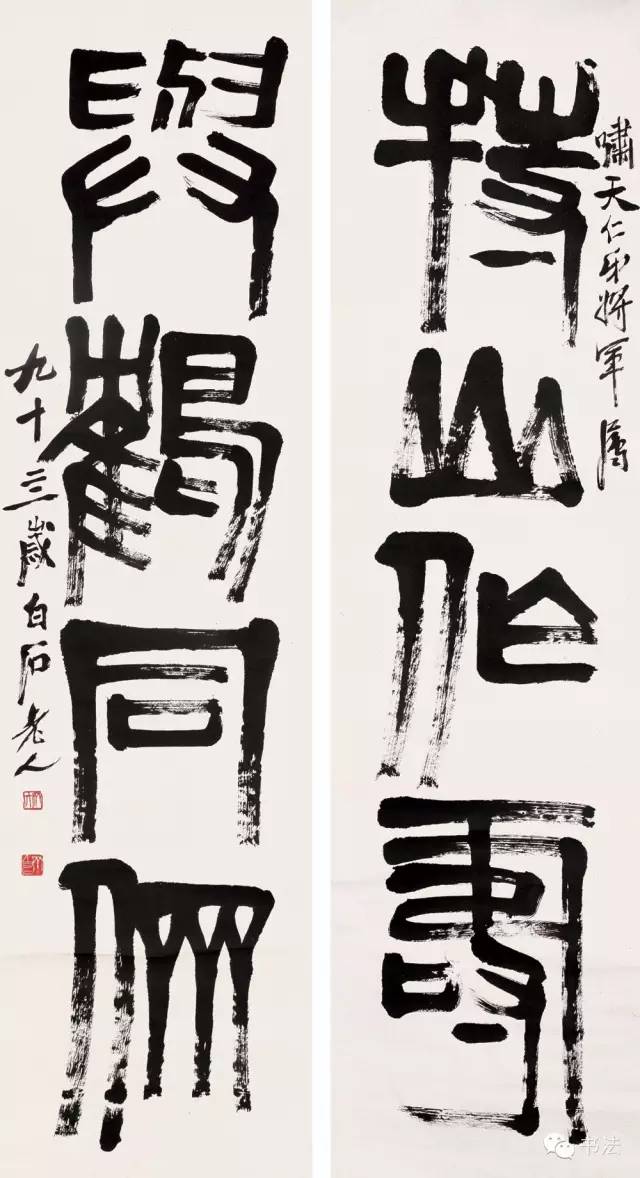 嘯天仁弟將軍屬
持山作壽
與鶴同
九十三歲白石老人
书法